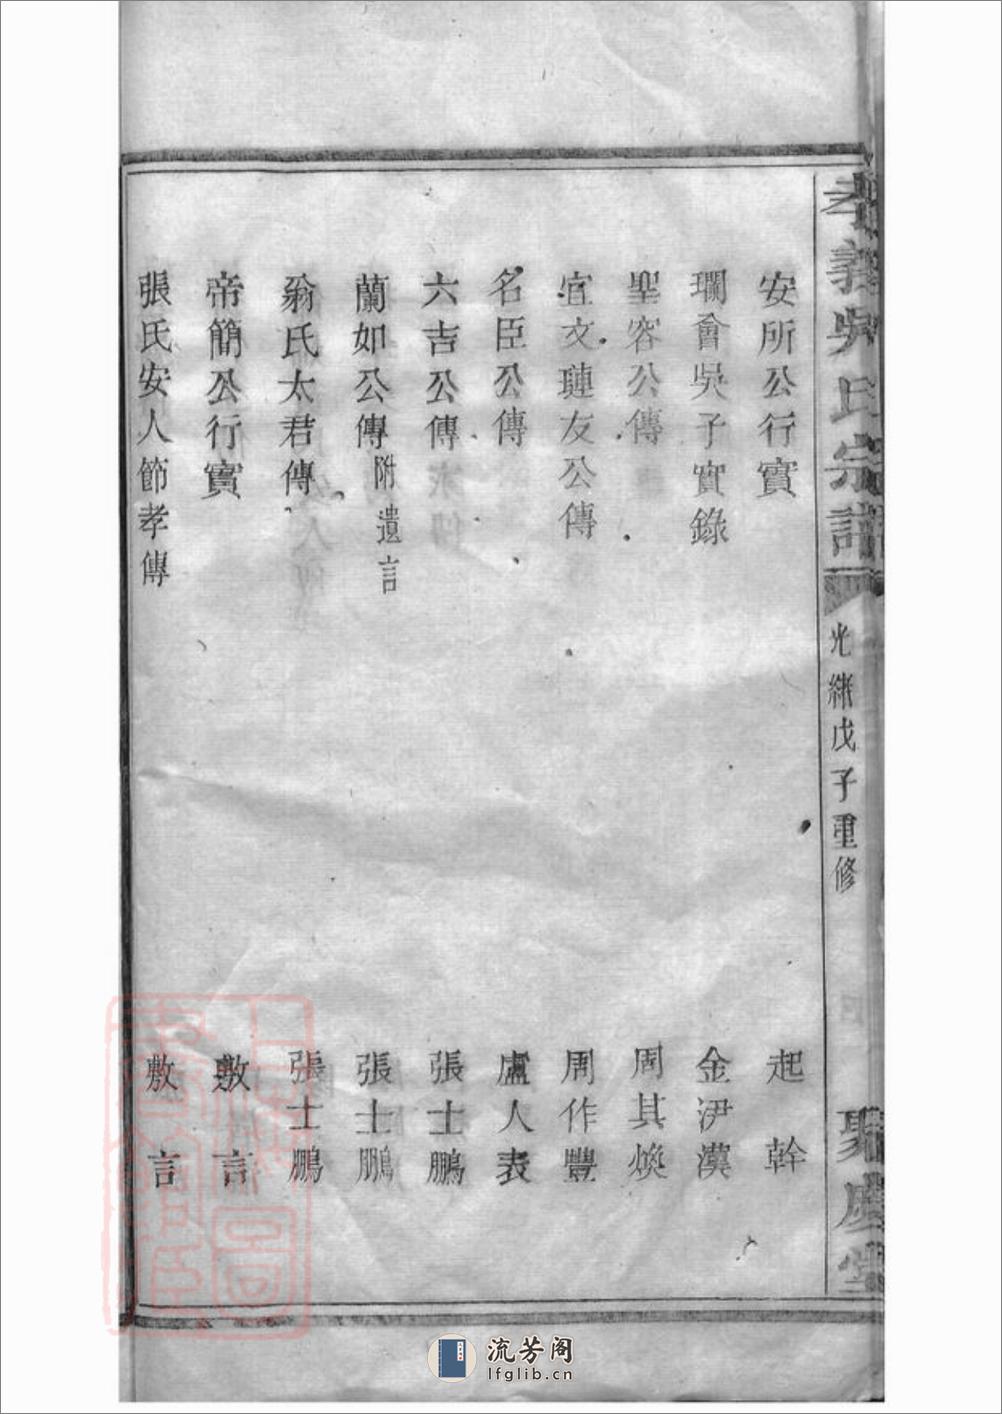 孝義吳氏宗譜
光緒戊子重修
聚慶堂
安所公行實 起幹
瓓會吳子實錄 金伊漢
聖容公傳 周其煥
宜文璉友公傳 周作豐
名臣公傳 盧人表
六吉公傳 張士鵬
蘭如公傳 附遺言 張士鵬
翁氏太君傳 張士鵬
帝簡公行實 敷言
張氏安人節孝傳 敷言
流芳阁
lfglib.cn